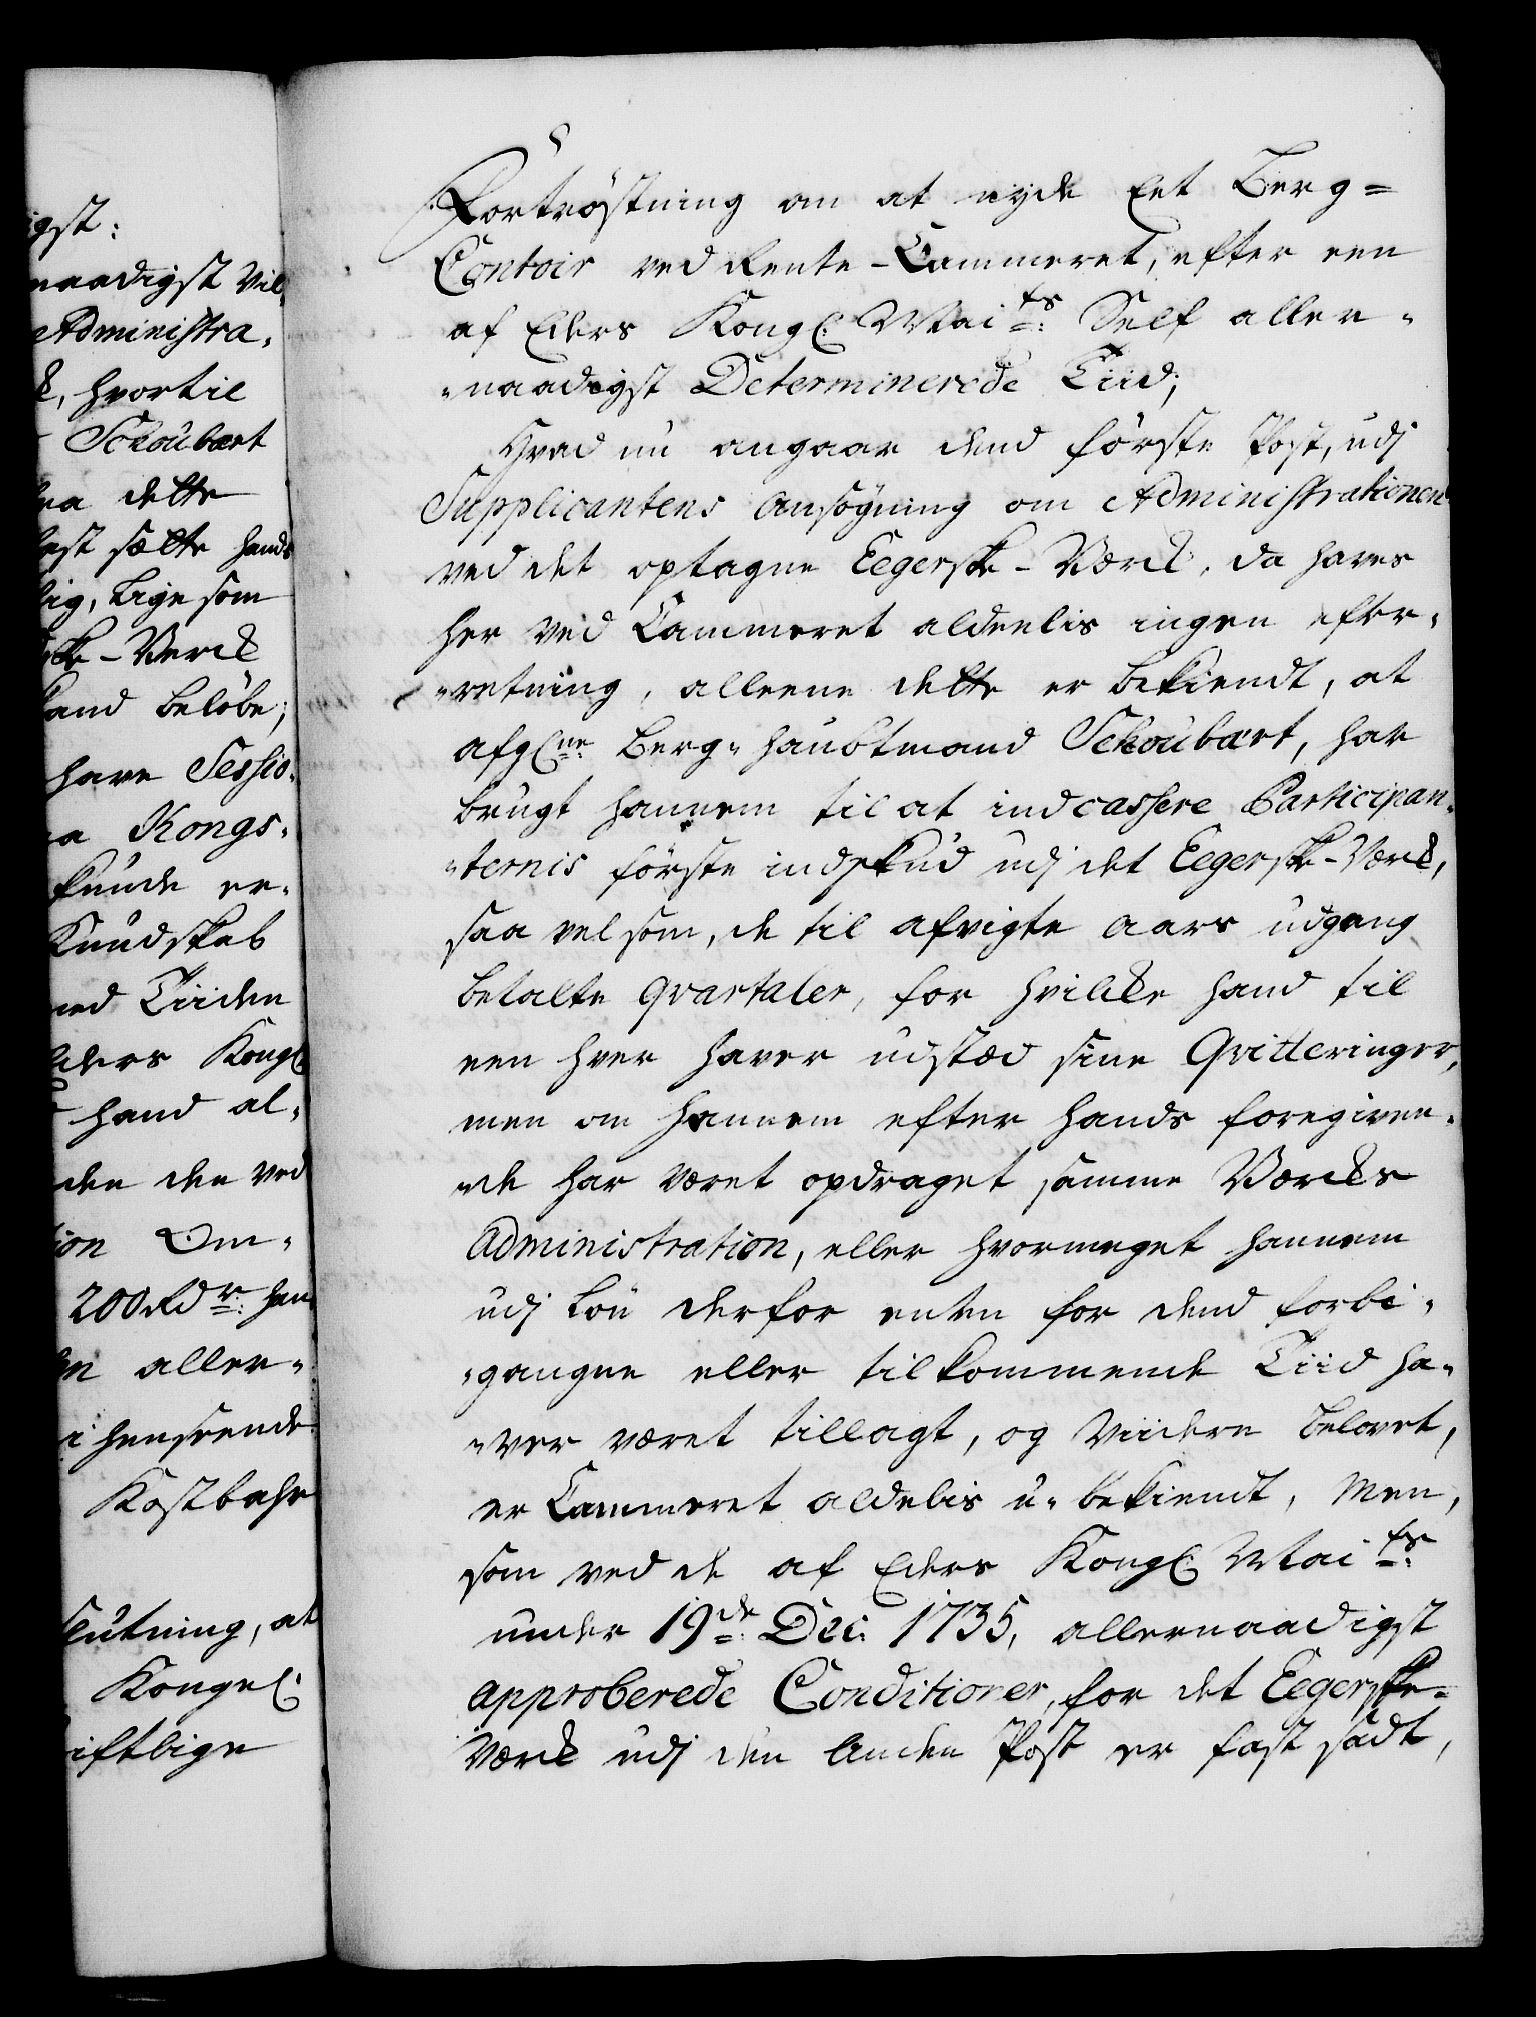 igst:
naadigst Vil,
Administra,
k, hvortil
Schoubært
ra dette
fast sætte hands
lig, Lige som
ske-Verck
hand beløbe;
have Sessio,
a Kongs,
kunde er,
Kundskab
med Tiiden
Eders Kongl
hand al,
den den ved
ion Om,
200 Rdr: hans
en aller,
i henseende
Kostbahr
slutning, at
Kongel:
riftlige
Fortröstning om at nyde Eet Berg=
Contoir ved Rente-Cammeret, efter een
af Eders Kongl: Maits: Self aller,
„naadigst Determinerede Tiid;
Hvad nu angaar dend förste Post, udj
Supplicantens Ansögning om Administrationen
ved det optagne Eegerske-Værck, da haves
her ved Cammeret aldeelis ingen efter,
„retning, alleene dette er bekiendt, at
afgl:ne Berg-haubtmand Schoubært, har
brugt hannem til at indcassere Participan,
„ternis förste indskud udj det Eegerske-Værck,
saa vel som, de til afvigte aars udgang
betalte Qvartaler, for hvilcke hand til
een hver haver udstæd sine Qvitteringer,
men om hannem efter hands foregiven,
„de har været opdraget samme Værckes
Administration, eller hvormeget hannem
udj Lön derfor enten for dend forbi,
„gangne eller tilkommende Tiid ha,
„ver været tillagt, og Viidere belovet,
er Cammeret aldelis u-bekiendt, Men,
som ved de af Eders Kongl: Maits:
under 19de: Dec: 1735, allernaadigst
approberede Conditioner, for det Eegerske-
Værck udj den Anden Post er fast sadt,